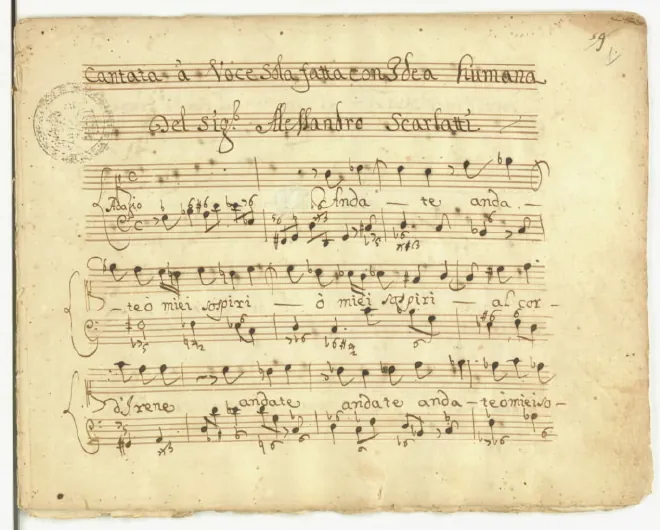 Cantata à Voce Sola fatta con Idea humana
Del Sig.r Alessandro Scarlatti
59
Adagio
Anda - te anda -
- te ò miei sospiri - ò miei sospiri - al cor -
d'Irene andate andate anda - te ò miei so -